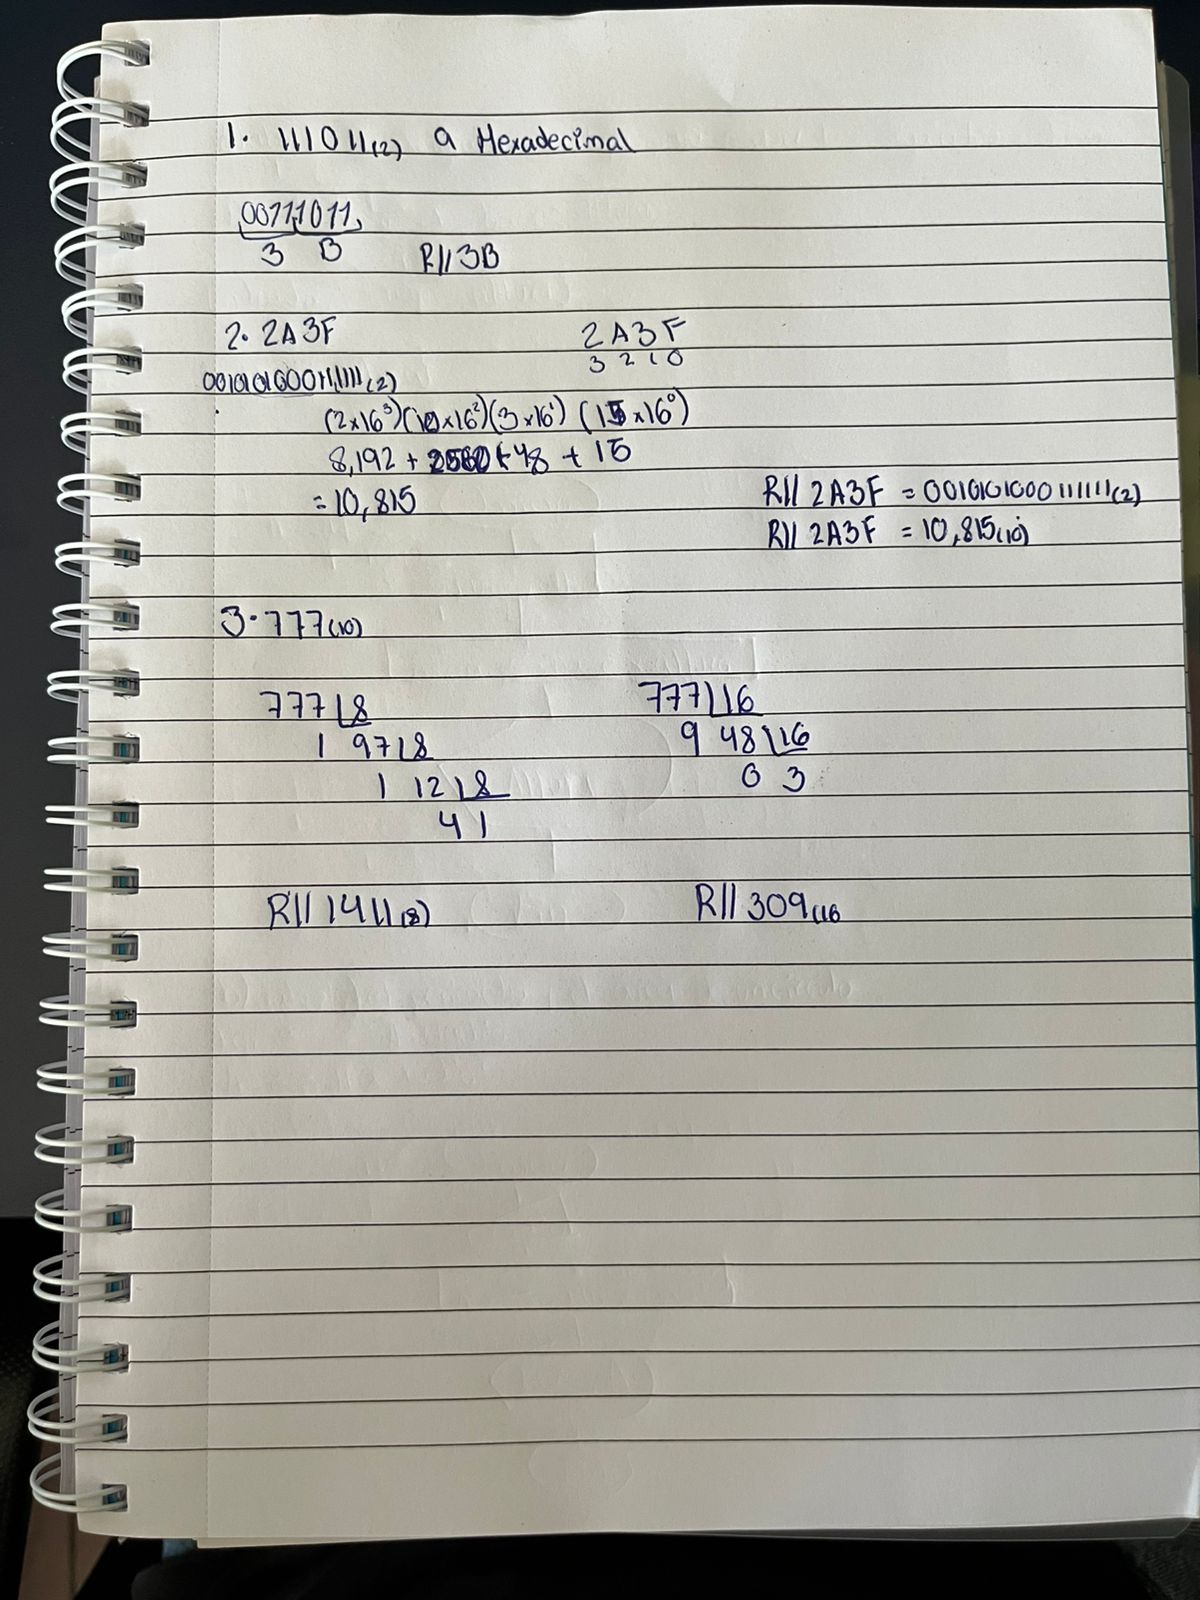 1. 111011(2) a Hexadecimal
00111011
3 B R// 3B
2. 2A3F 2A3F
3 2 1 0
0010101000111111(2)
(2x16³)(10x16²)(3x16¹) (15x16⁰)
8,192 + 2560 + 48 + 15
= 10,815
R// 2A3F = 0010101000111111(2)
R// 2A3F = 10,815(10)
3. 777(10)
777 8 777 16
1 97 8 9 48 16
1 12 8 0 3
4 1
R// 1411(8) R// 309(16